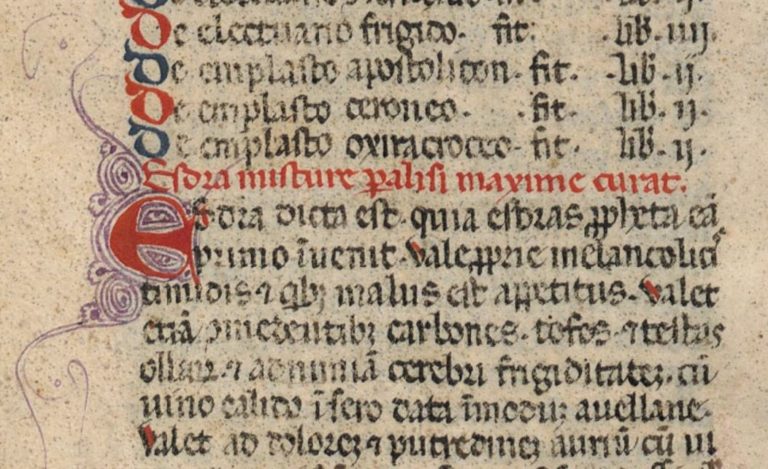 De electuario frigido. fit. .lib. iiij.
De emplasto apostolicon. fit. .lib. ij.
De emplasto ceroneo. .fit. .lib. ij.
De emplasto oxiracroceo. fit. .lib. ij.
Esdra misture palisi maxime curat.
Esdra dicta est. quia esdras ppheta eā
primo īuenit. Vale pprie melancolici
timidis ⁊ qb; malus est appetitus. Valet
etiā carbones. tofos. ⁊ testas
ollar ⁊ ad nimiā cerebri frigiditatez. cū
uino calido ī sero data īmoduz auellane.
Valet ad dolorez ⁊ putredinez auriū cū ui